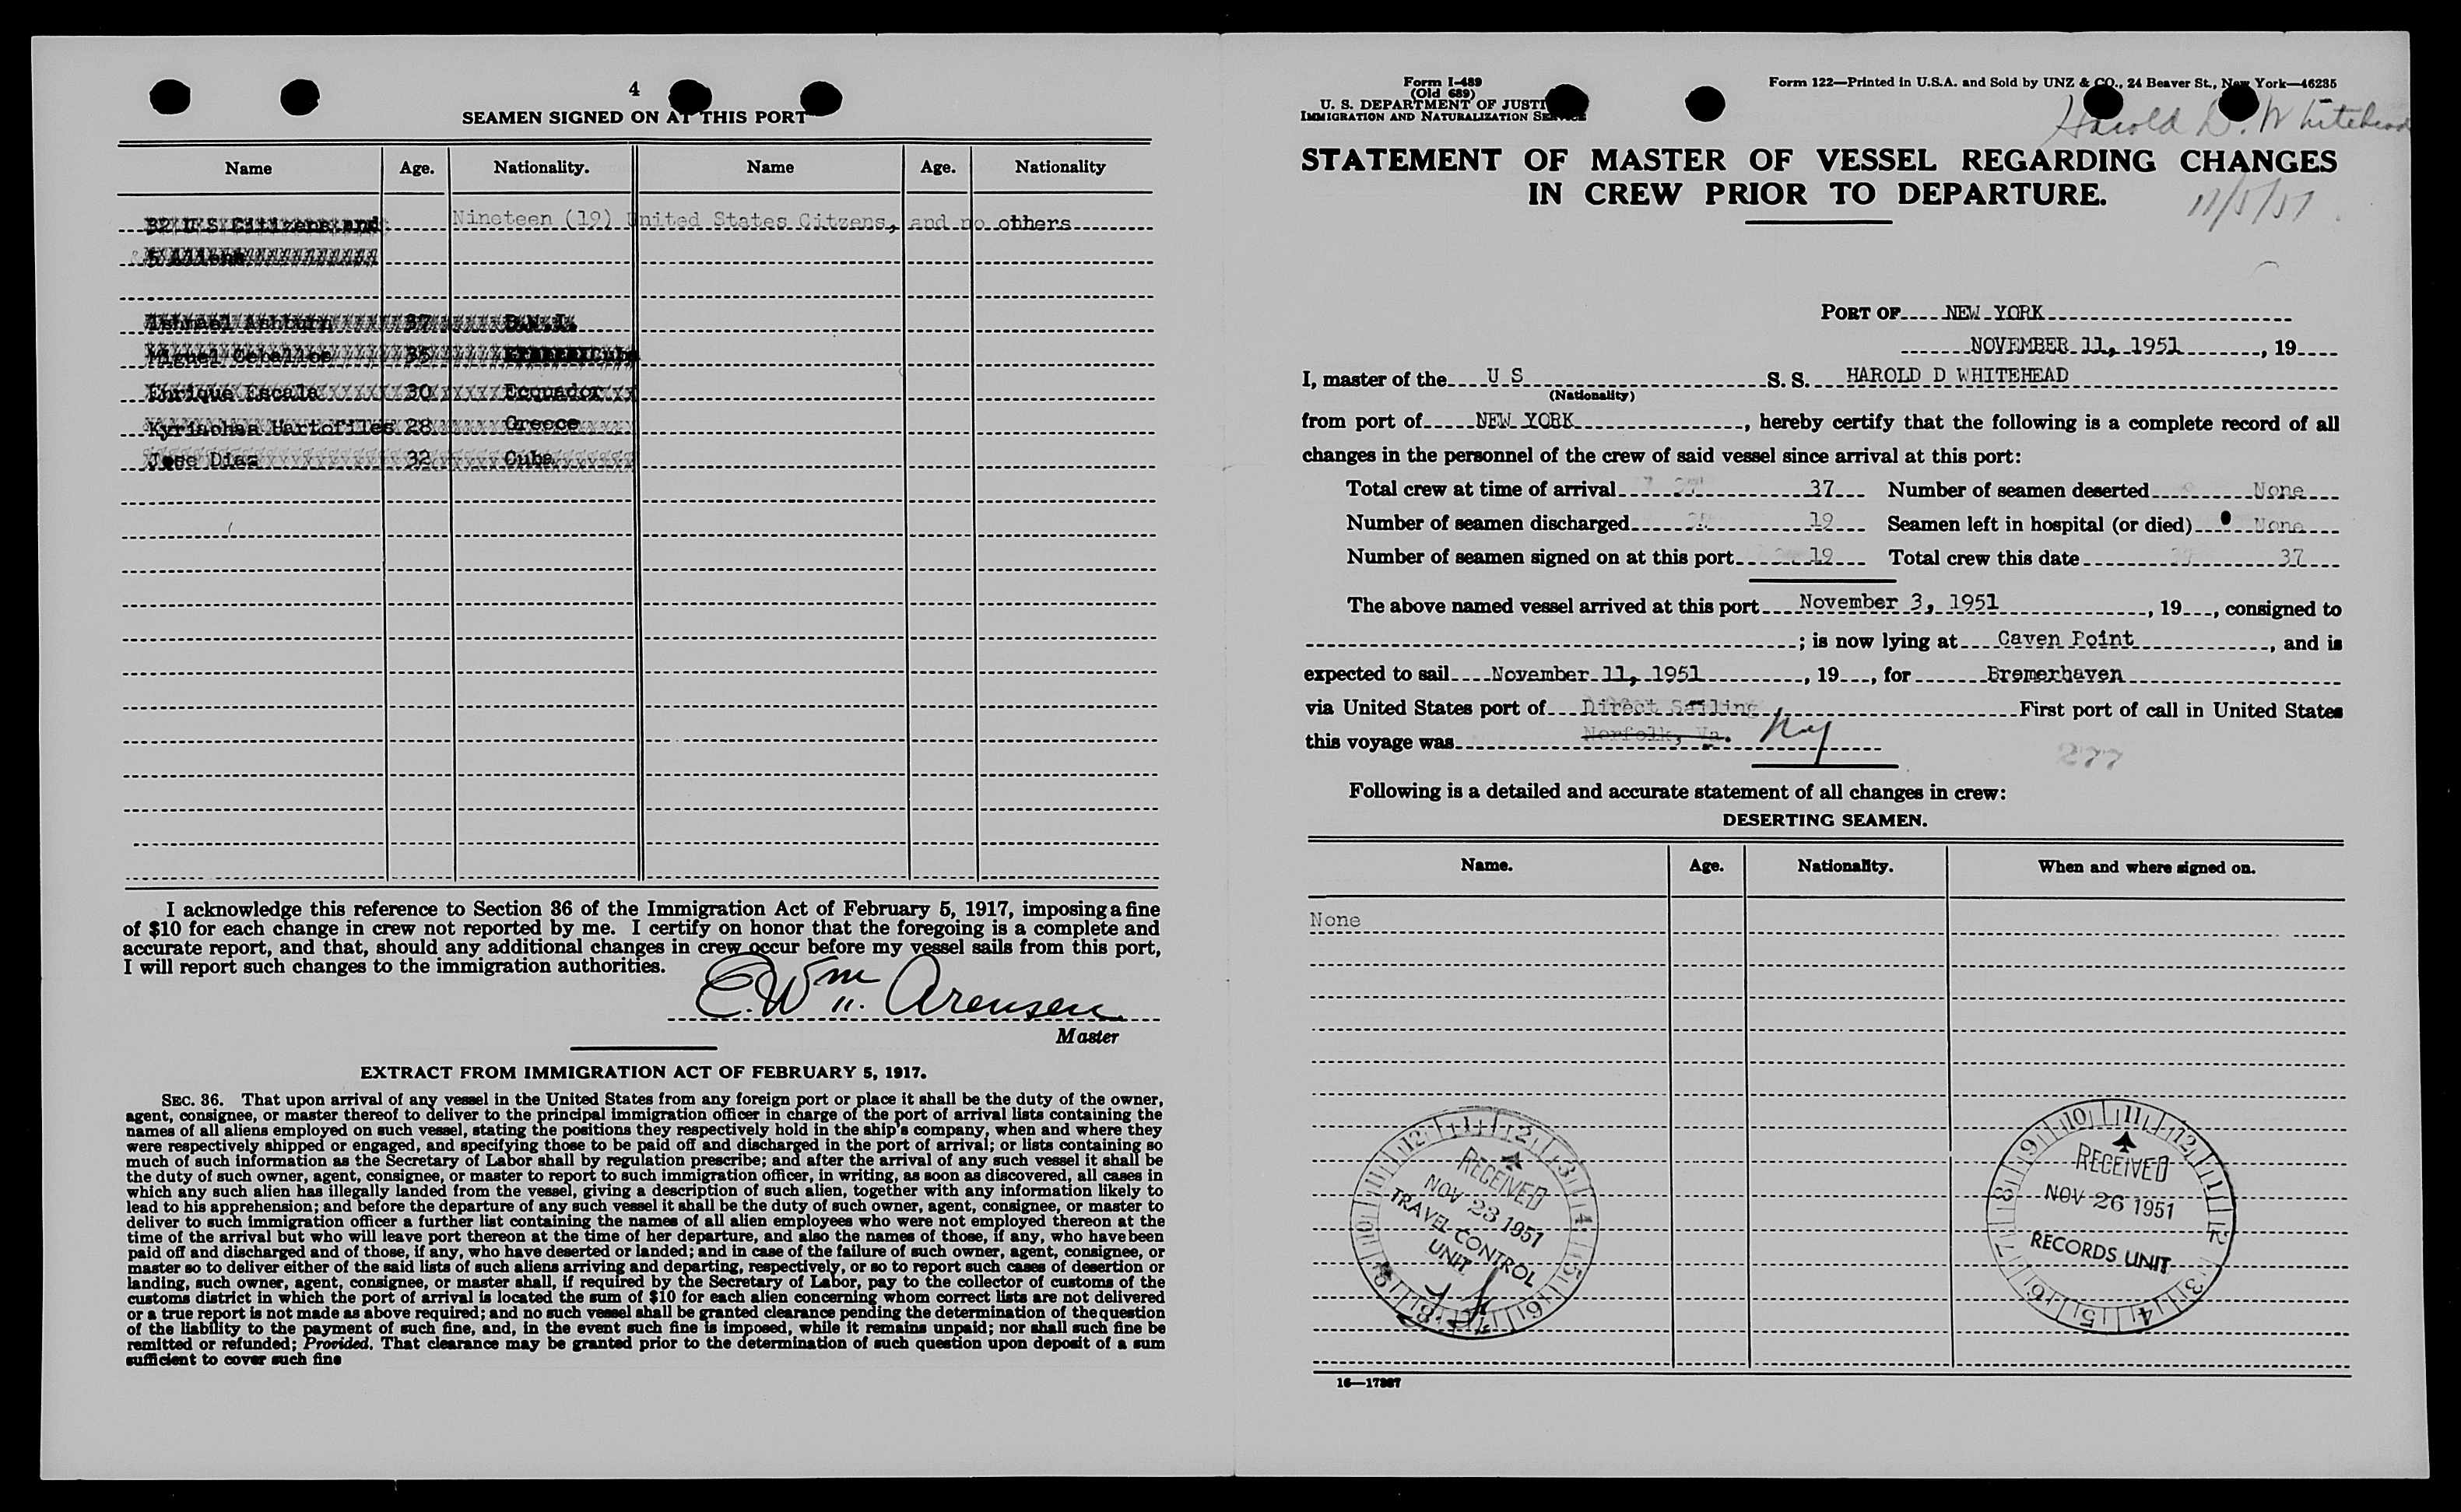 4
SEAMEN SIGNED ON AT THIS PORT
Name Age. Nationality. Name Age. Nationality
32 U S Citizens and Nineteen (19) United States Citzens, and no others
5 Aliens
Ishmael Ashburn 37 B.W.I.
Miguel Ceballos 35 Cuba
Enrique Escala 30 Ecquador
Hartofiles 28 Greece
Jose Diaz 32 Cuba
I acknowledge this reference to Section 36 of the Immigration Act of February 5, 1917, imposing a fine
of $10 for each change in crew not reported by me. I certify on honor that the foregoing is a complete and
accurate report, and that, should any additional changes in crew occur before my vessel sails from this port,
I will report such changes to the immigration authorities.
E. Wm. Arensen
Master
EXTRACT FROM IMMIGRATION ACT OF FEBRUARY 5, 1917.
SEC. 36. That upon arrival of any vessel in the United States from any foreign port or place it shall be the duty of the owner,
agent, consignee, or master thereof to deliver to the principal immigration officer in charge of the port of arrival lists containing the
names of all aliens employed on such vessel, stating the positions they respectively hold in the ship's company, when and where they
were respectively shipped or engaged, and specifying those to be paid off and discharged in the port of arrival; or lists containing so
much of such information as the Secretary of Labor shall by regulation prescribe; and after the arrival of any such vessel it shall be
the duty of such owner, agent, consignee, or master to report to such immigration officer, in writing, as soon as discovered, all cases in
which any such alien has illegally landed from the vessel, giving a description of such alien, together with any information likely to
lead to his apprehension; and before the departure of any such vessel it shall be the duty of such owner, agent, consignee, or master to
deliver to such immigration officer a further list containing the names of all alien employees who were not employed thereon at the
time of the arrival but who will leave port thereon at the time of her departure, and also the names of those, if any, who have been
paid off and discharged and of those, if any, who have deserted or landed; and in case of the failure of such owner, agent, consignee, or
master so to deliver either of the said lists of such aliens arriving and departing, respectively, or so to report such cases of desertion or
landing, such owner, agent, consignee, or master shall, if required by the Secretary of Labor, pay to the collector of customs of the
customs district in which the port of arrival is located the sum of $10 for each alien concerning whom correct lists are not delivered
or a true report is not made as above required; and no such vessel shall be granted clearance pending the determination of the question
of the liability to the payment of such fine, and, in the event such fine is imposed, while it remains unpaid; nor shall such fine be
remitted or refunded; Provided, That clearance may be granted prior to the determination of such question upon deposit of a sum
sufficient to cover such fine
Form I-489
(Old 689)
U. S. DEPARTMENT OF JUSTI
IMMIGRATION AND NATURALIZATION SERVICE
Form 122—Printed in U.S.A. and Sold by UNZ & CO., 24 Beaver St., New York—46235
Harold D. Whitehead
STATEMENT OF MASTER OF VESSEL REGARDING CHANGES
IN CREW PRIOR TO DEPARTURE.
11/5/51
PORT OF NEW YORK
NOVEMBER 11, 1951, 19
I, master of the U S S. S. HAROLD D WHITEHEAD
(Nationality)
from port of NEW YORK, hereby certify that the following is a complete record of all
changes in the personnel of the crew of said vessel since arrival at this port:
Total crew at time of arrival 37 Number of seamen deserted None
Number of seamen discharged 19 Seamen left in hospital (or died) None
Number of seamen signed on at this port 19 Total crew this date 37
The above named vessel arrived at this port November 3, 1951, 19, consigned to
; is now lying at Caven Point, and is
expected to sail November 11, 1951, 19, for Bremerhaven
via United States port of Direct Sailing First port of call in United States
this voyage was Norfolk, Va. Ny
277
Following is a detailed and accurate statement of all changes in crew:
DESERTING SEAMEN.
Name. Age. Nationality. When and where signed on.
None
RECEIVED
NOV 23 1951
TRAVEL CONTROL
UNIT
RECEIVED
NOV 26 1951
RECORDS UNIT
16—17887